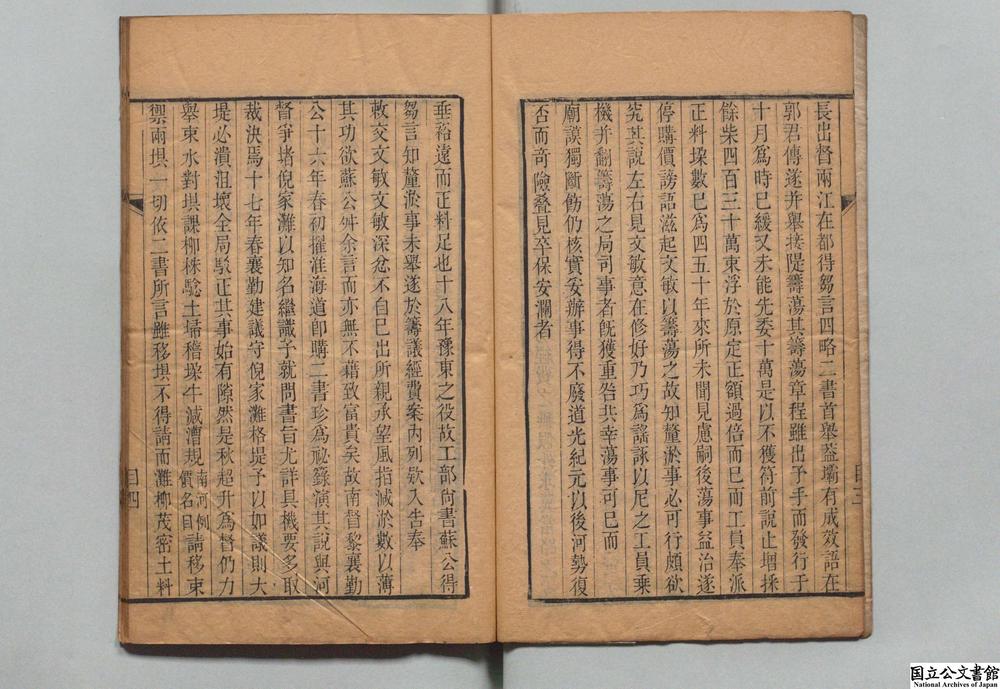 長出督兩江在都得芻言四略二書首舉葢壩有成效語在
郭君傳遂并舉接隄籌蕩其籌蕩章程雖出予手而發行于
十月爲時巳緩又未能先委十萬是以不獲符前說止増採
餘柴四百三十萬束浮於原定正額過倍而巳而工員奉派
正料垜數巳爲四五十年來所未聞見慮嗣後蕩事益治遂
停購價謗語滋起文敏以籌蕩之故知釐淤事必可行頗欲
究其說左右見文敏意在修好乃巧爲謡諑以尼之工員乗
機并翻籌蕩之局司事者旣獲重咎共幸蕩事可巳而
廟謨獨斷飭仍核實妥辦事得不廢道光紀元以後河勢復
否而奇險疊見卒保安瀾者
垂裕遠而正料足也十八年豫東之役故工部尙書蘇公得
芻言知釐淤事未舉遂於籌議經費案内列欵入告奉
敕交文敏文敏深忿不自巳出所親承望風指減淤數以薄
其功欲蘇公舛余言而亦無不藉致富貴矣故南督黎襄勤
公十六年春初擢淮海道卽購二書珍爲祕籙演其說與河
督爭堵倪家灘以知名繼識予就問書旨尤詳具機要多取
裁決焉十七年春襄勤建議守倪家灘格堤予以如議則大
堤必潰沮壞全局駁正其事始有隙然是秋超升爲督仍力
舉束水對垻課柳株驗土埽稽垜牛減漕規南河例價名目請移束
禦兩垻一切依二書所言雖移垻不得請而灘柳茂密土料
目三
目四
国立公文書館
National Archives of Japan